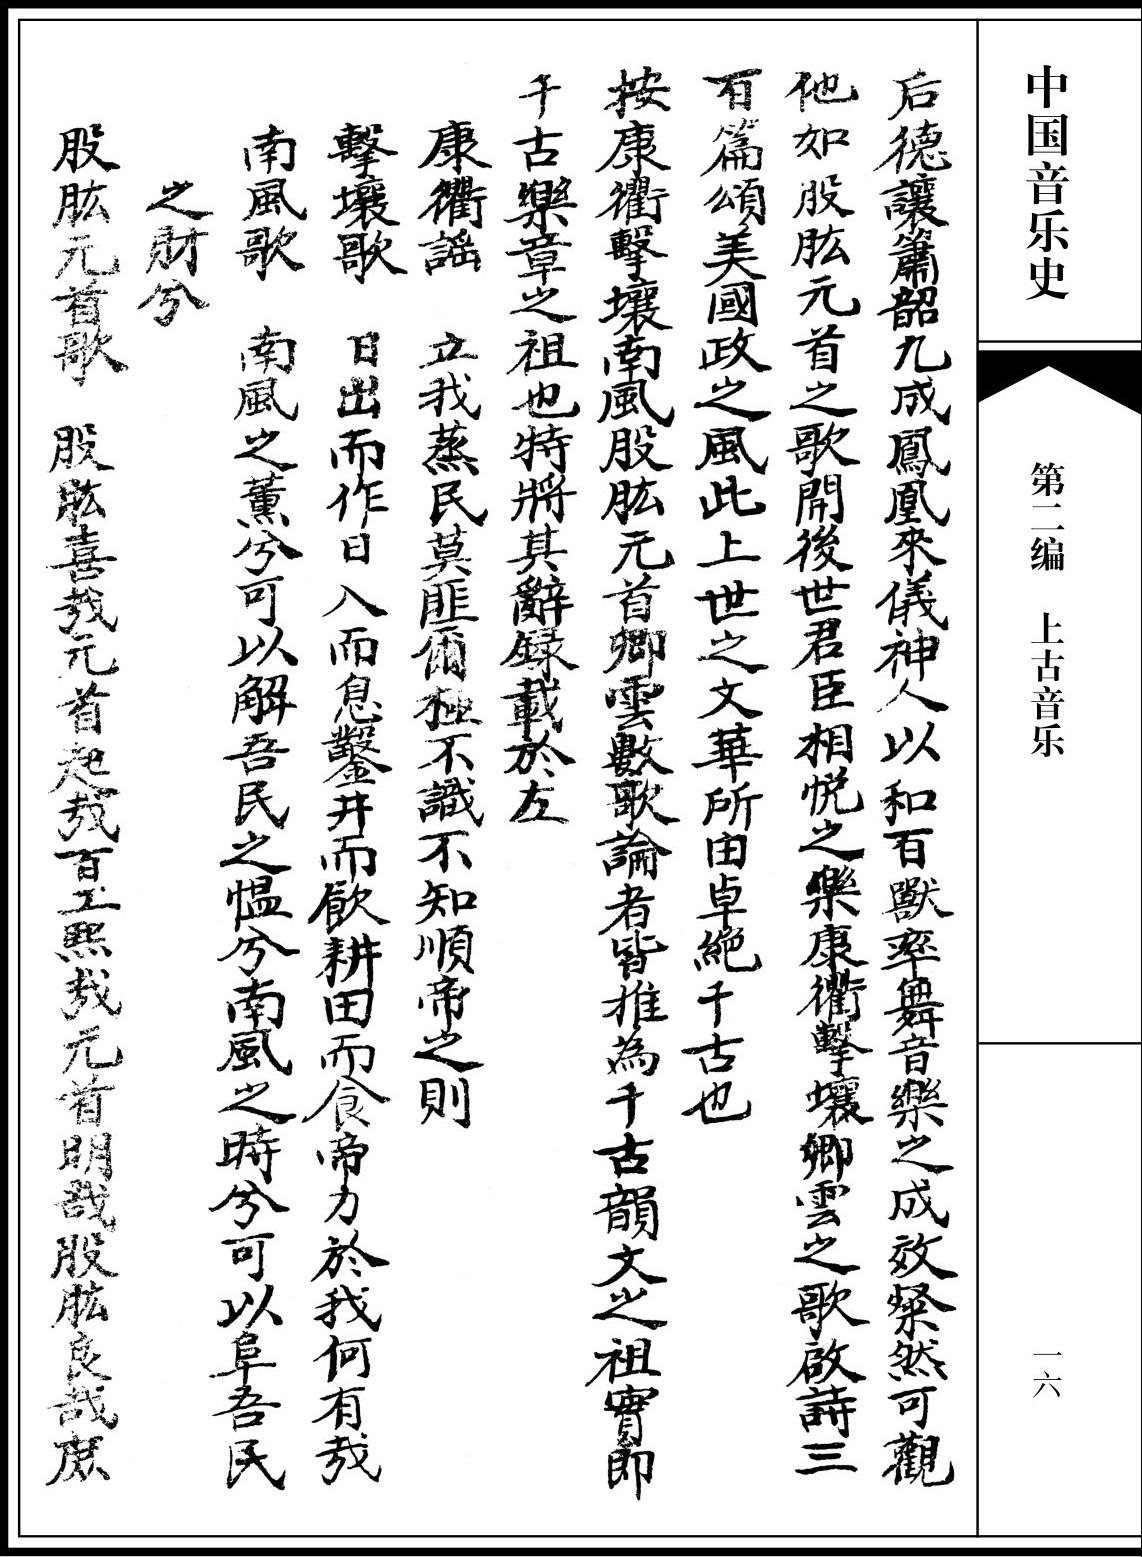 中国音乐史
第二编 上古音乐
一六
后德讓簫韶九成鳳凰來儀神人以和百獸率舞音樂之成效粲然可觀
他如股肱元首之歌開後世君臣相悅之樂康衢擊壤卿雲之歌啟詩三
百篇頌美國政之風此上世之文華所由卓絕千古也
按康衢擊壤南風股肱元首卿雲數歌論者皆推為千古韻文之祖實即
千古樂章之祖也特將其辭錄載於左
康衢謠 立我蒸民莫匪爾極不識不知順帝之則
擊壤歌 日出而作日入而息鑿井而飲耕田而食帝力於我何有哉
南風歌 南風之薰兮可以解吾民之慍兮南風之時兮可以阜吾民
之財兮
股肱元首歌 股肱喜哉元首起哉百工熙哉元首明哉股肱良哉庶